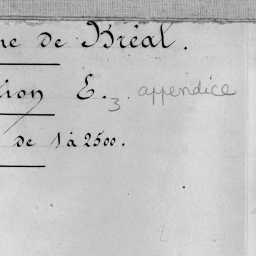 ne de Bréal.
tion E.3 appendice
de 1 à 2500.